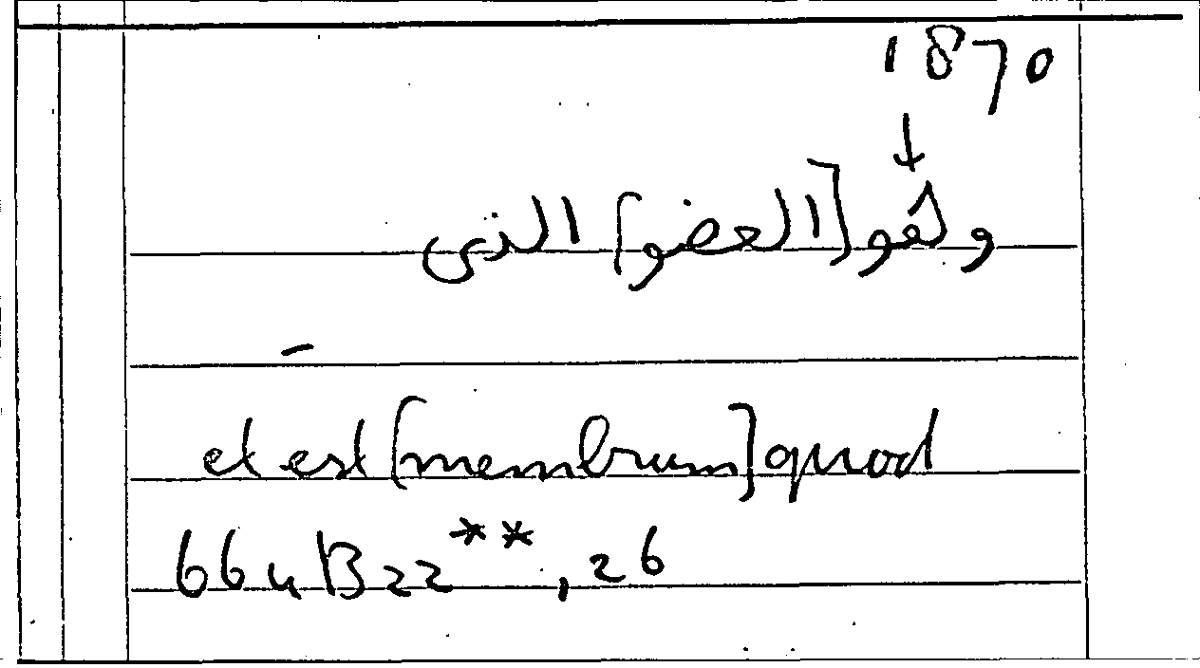 1870
↓
ولهو [العضو] الذى
–
et est [membrum] quod
664B22**, 26